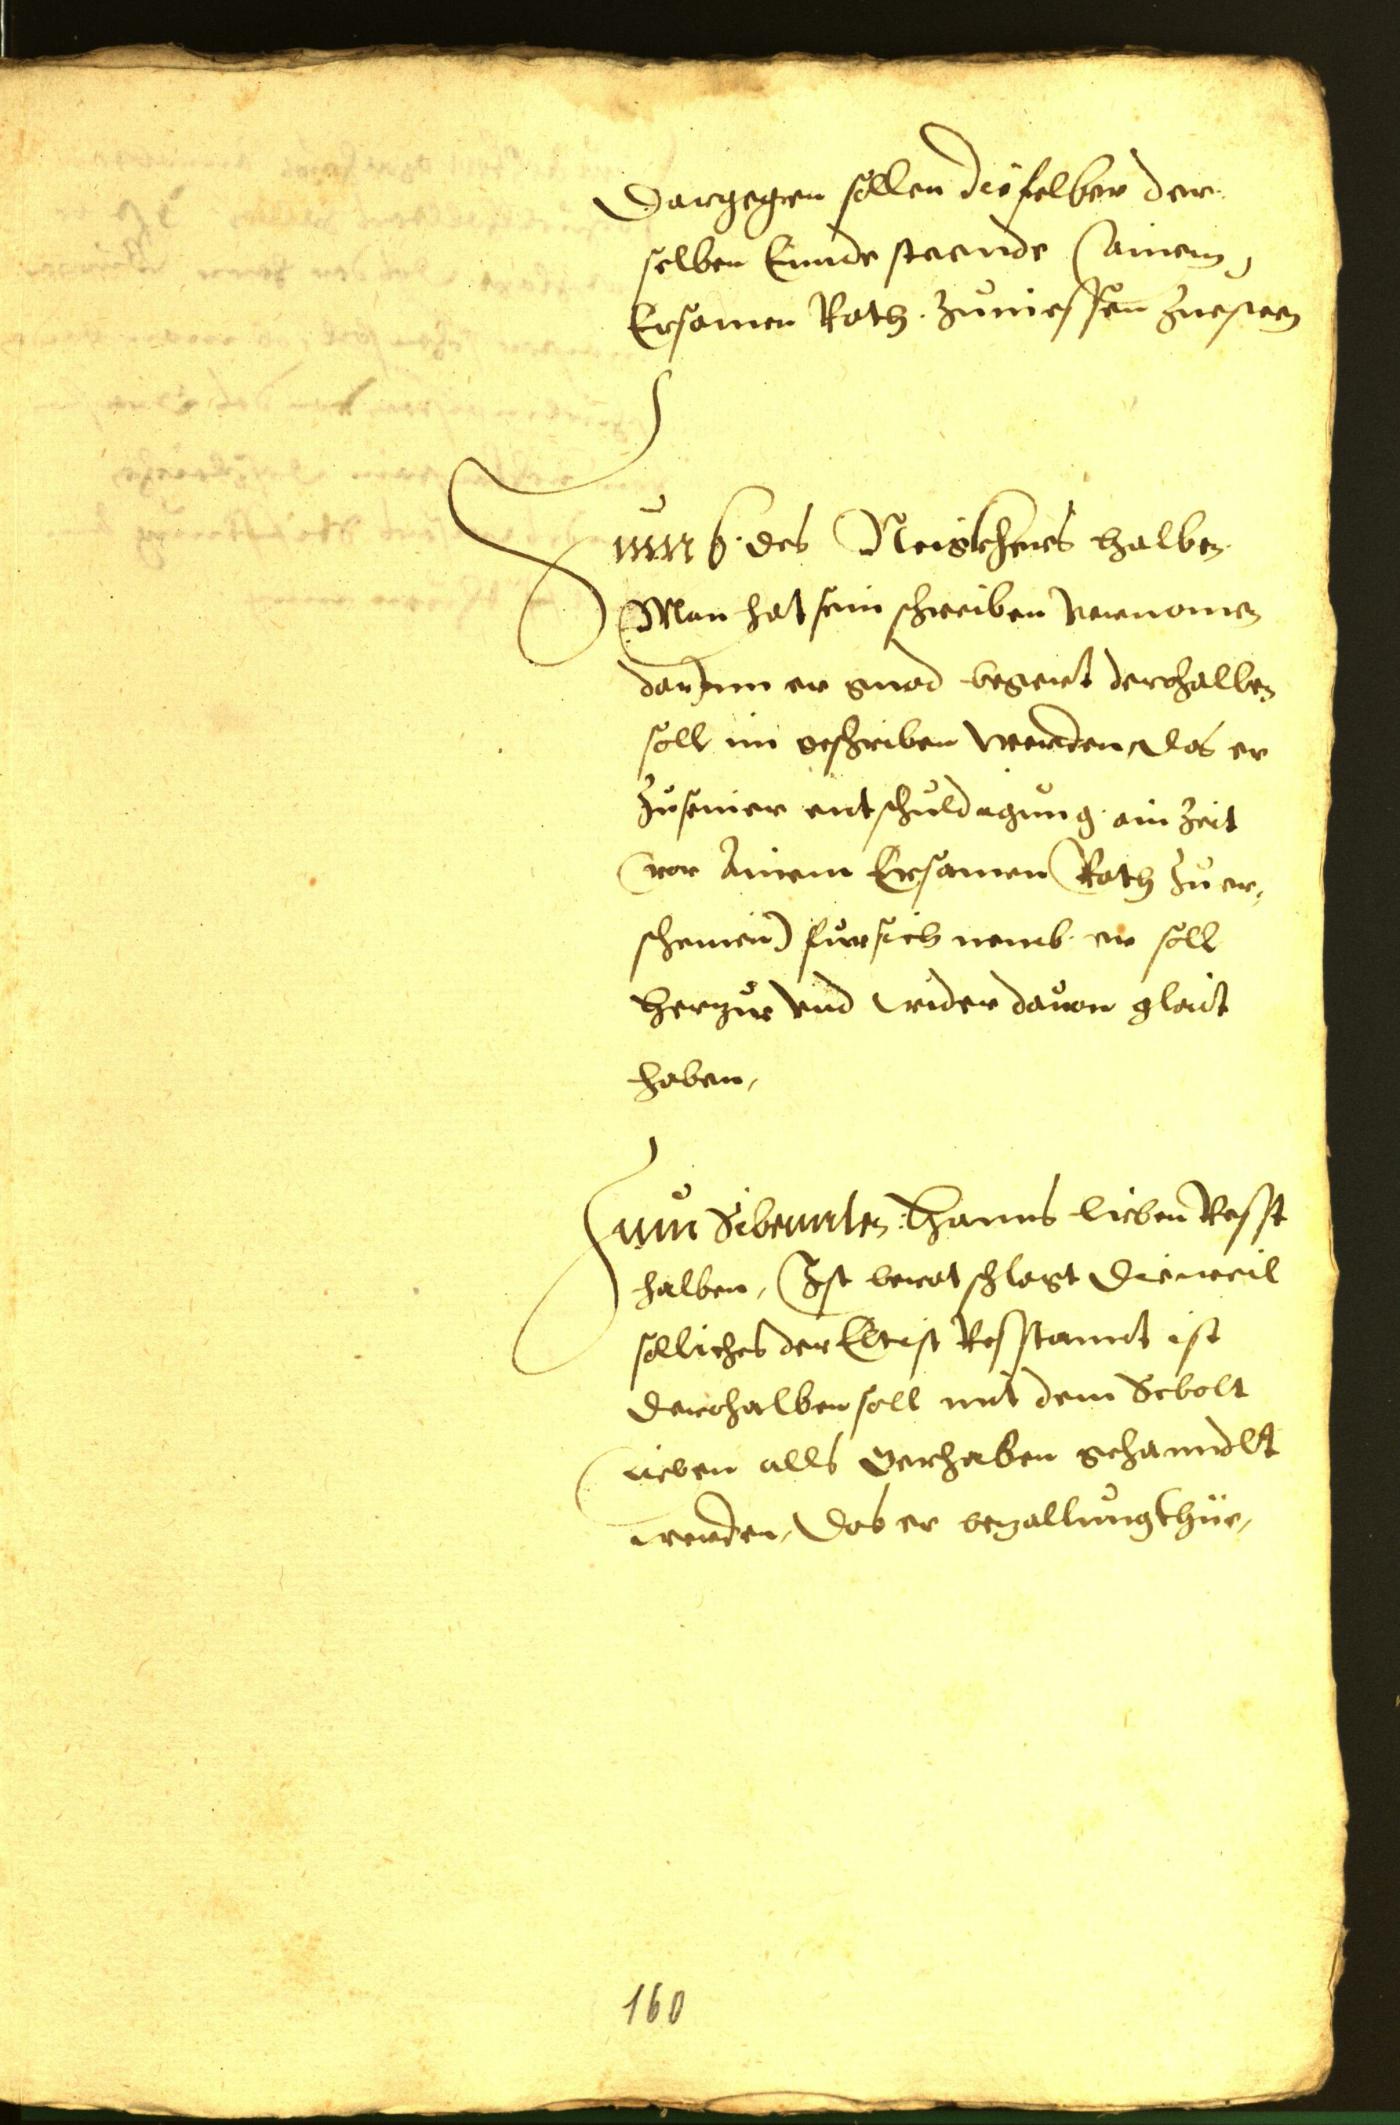 Dargegen sollen die felber der
selben Ennde steende ainem
Ersamen Rath zuniessen zuesteen
Zum 6. des Neiskhers halben
Man hat sein schreiben vernomen
darjnn er gnad begert derohalben
soll im geschriben werden, das er
zu seiner entschuldigung ain zeit
vor ainem Ersamen Rath zu er,
scheinen) fur sich nemb. er soll
herzue vnd wider dauon glait
haben,
Zum Sibennten Hanns lieben Resst
halben, Ist beratschlagt Dieweil
solliches der Eltist Resstannt ist
Derohalben soll mit dem Sebolt
lieben alls Gerhaben gehanndlt
werden, Das er bezallung thue,
160